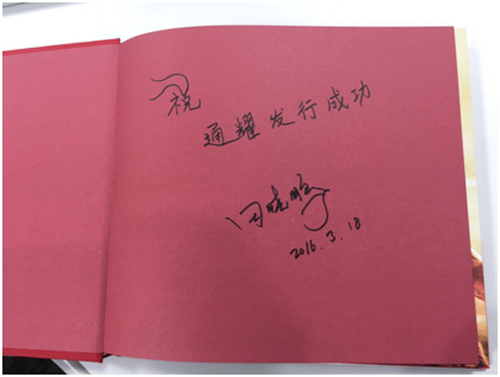 祝
通耀发行成功
田晓鹏
2016.3.18